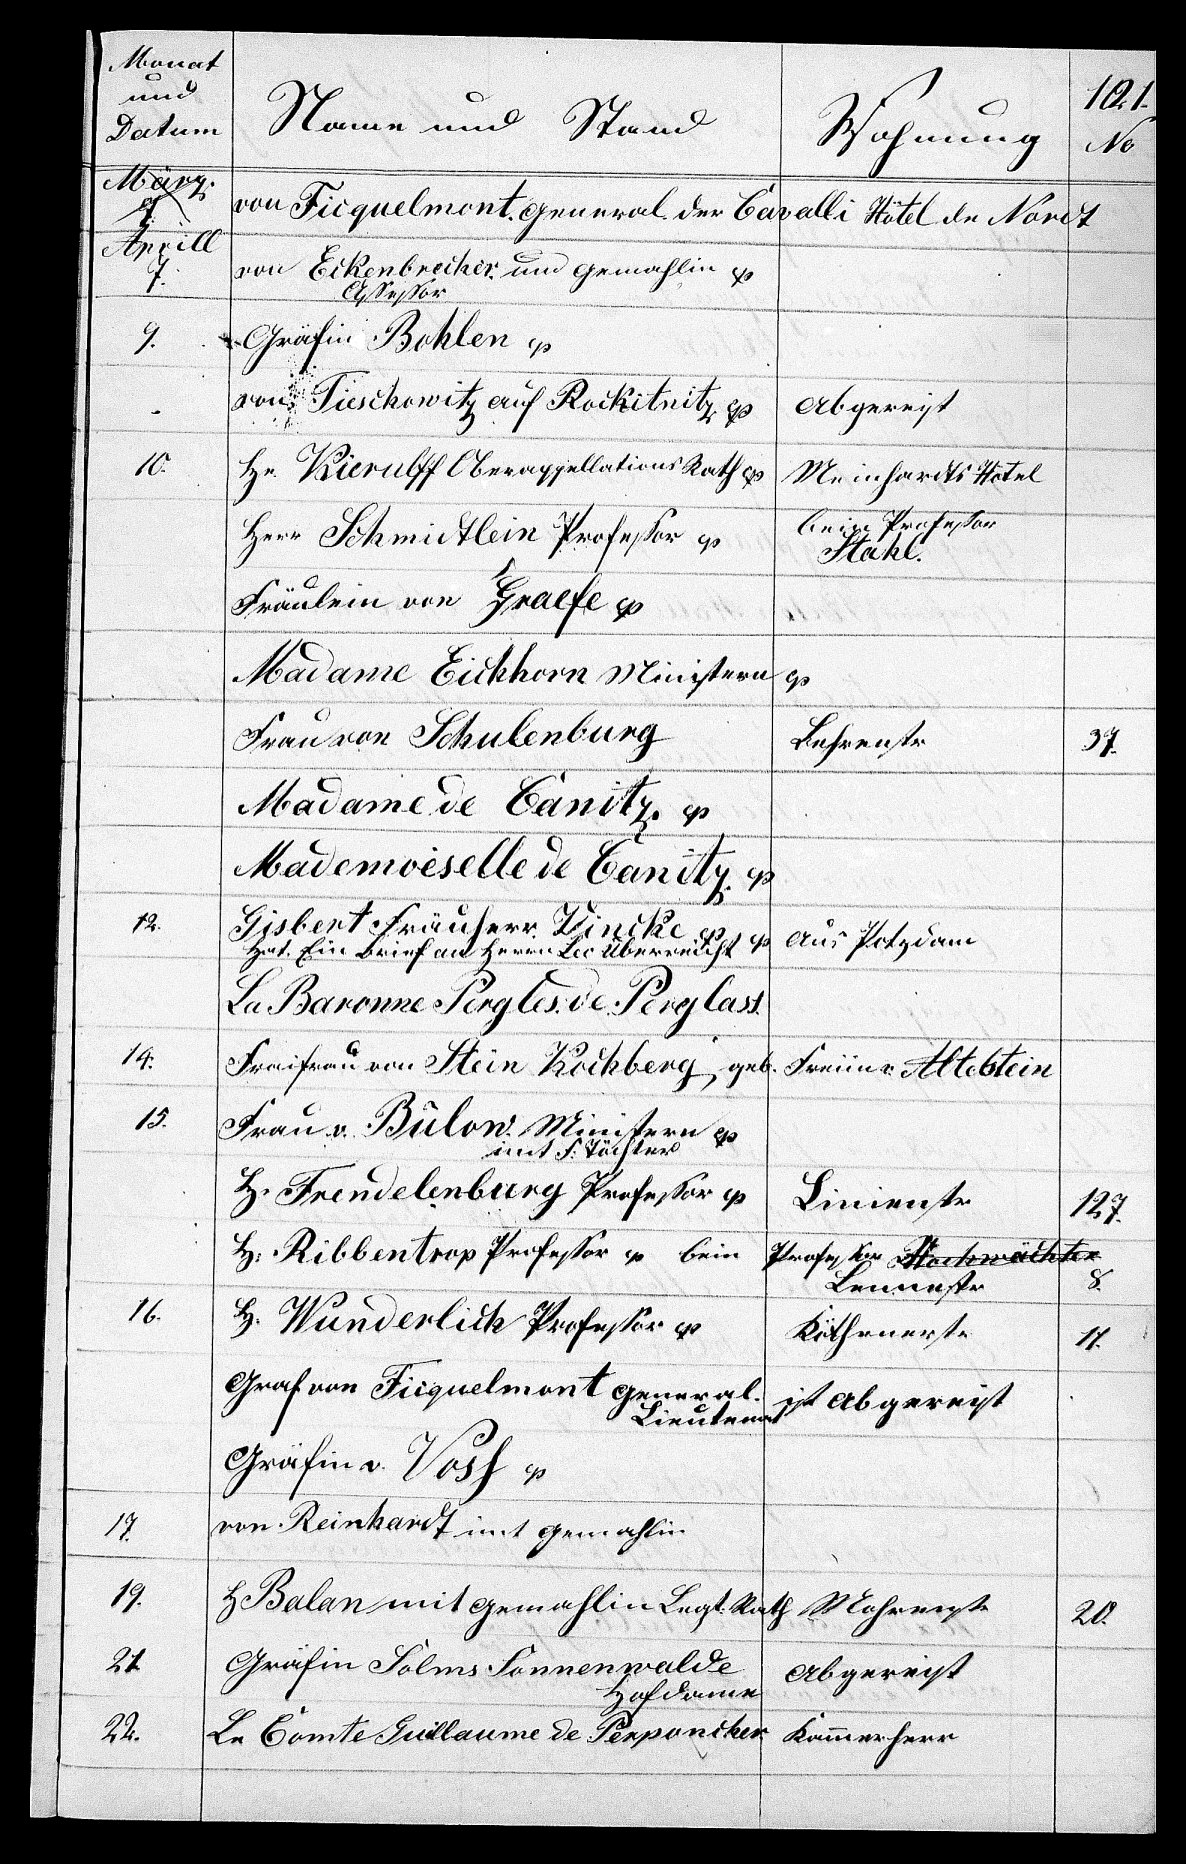 Monat und Datum Name und Stand Wohnung 101. No
März. 9.
von Ficquelmont. General. der Cavalli Hôtel de Nordt
Aprill
7. von Eckenbrecher und Gemahlin
Assessor
9. Gräfin Bohlen
- von Tieschowitz auf Rockitnitz Abgereist
10. Hr. Kierulff Oberappellations Rath Meinhardts Hotel
Herr Schmidtlein Professor beim Professor
Stahl.
Fräulein von Graefe
Madame Eichhorn Ministern
Frau von Schulenburg Behrenstr 37.
Madame de Canitz.
Mademoiselle de Canitz.
12. Gisbert Fräuherr Vincke Aus Potzdam
Hat. Ein Brief an Herrn Leo Überreicht
La Baronne Pergles. de. Perglass.
14. Freifrau von Stein Kochberg, geb. Freiin v. Altestein
15. Frau v. Bülow. Ministern
mit F: Töchter
H. Trendelenburg Professor Linienstr 127.
H: Ribbentrop Professor bein Professor Hochwächter
Lennestr 8.
16. H. Wunderlich Professor Köthenerstr 11.
Graf von Ficquelmont General. ist Abgereist
Lieutenant
Gräfin v. Voss
17. von Reinhardt mit Gemahlin
19. H Balan mit Gemahlin Legt: Rath Mohrenstr 20.
21. Gräfin Solms Sonnenwalde Abgereist
Hofdame
22. Le Comte Guillaume de Perponcher Kam̄erherr